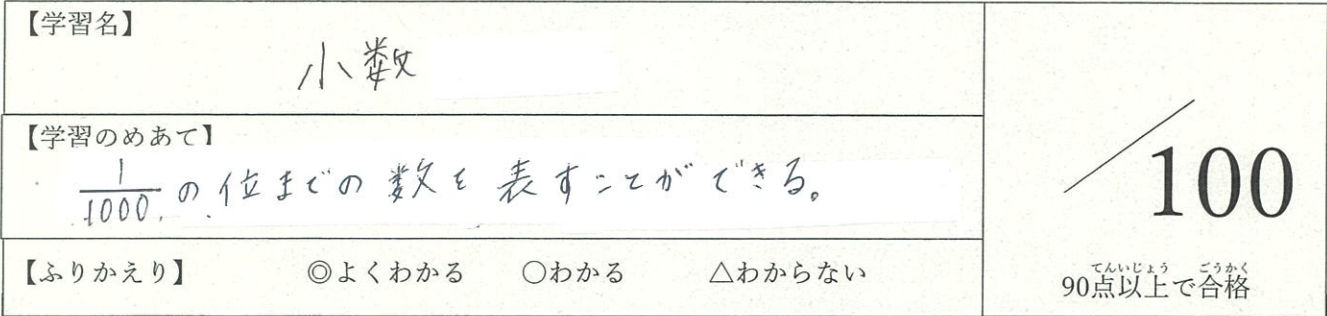 【学習名】
小数
【学習のめあて】
1/1000の位までの数を表すことができる。
【ふりかえり】 ◎よくわかる ○わかる △わからない
/100
てんいじょう ごうかく
90点以上で合格